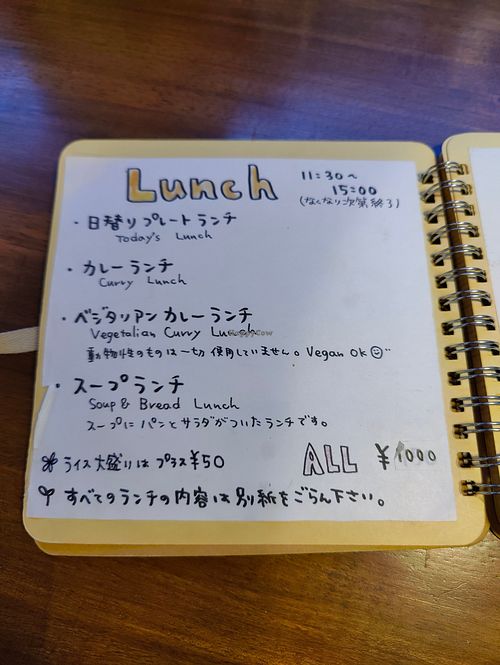 Lunch
11:30〜
15:00
(なくなり次第終了)
・日替りプレートランチ
Today's Lunch
・カレーランチ
Curry Lunch
・ベジタリアンカレーランチ
Vegetalian Curry Lunch
動物性のものは一切使用していません。Vegan OK
・スープランチ
Soup & Bread Lunch
スープにパンとサラダがついたランチです。
ライス大盛りはプラス¥50
ALL ¥1000
すべてのランチの内容は別紙をごらん下さい。
HappyCow